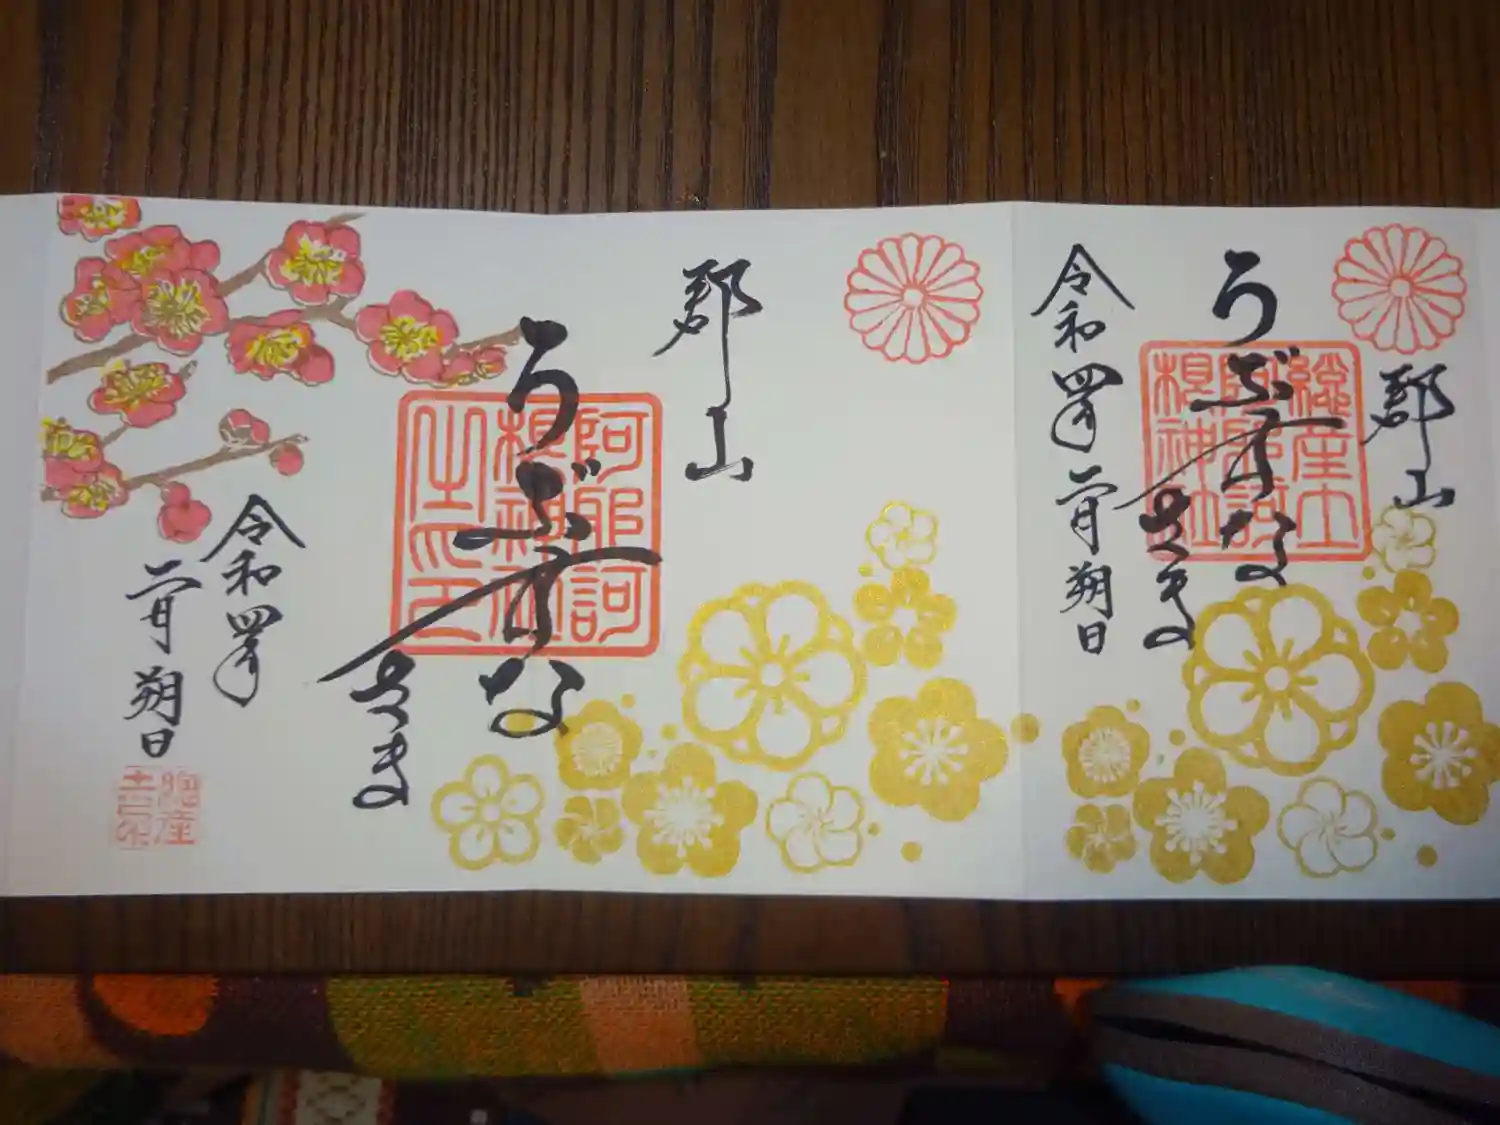 郡山
総産土
阿邪訶
根神社
うぶすな
さま
令和四年
二月朔日
郡山
阿邪訶
根神社
之印
うぶすな
さま
令和四年
二月朔日